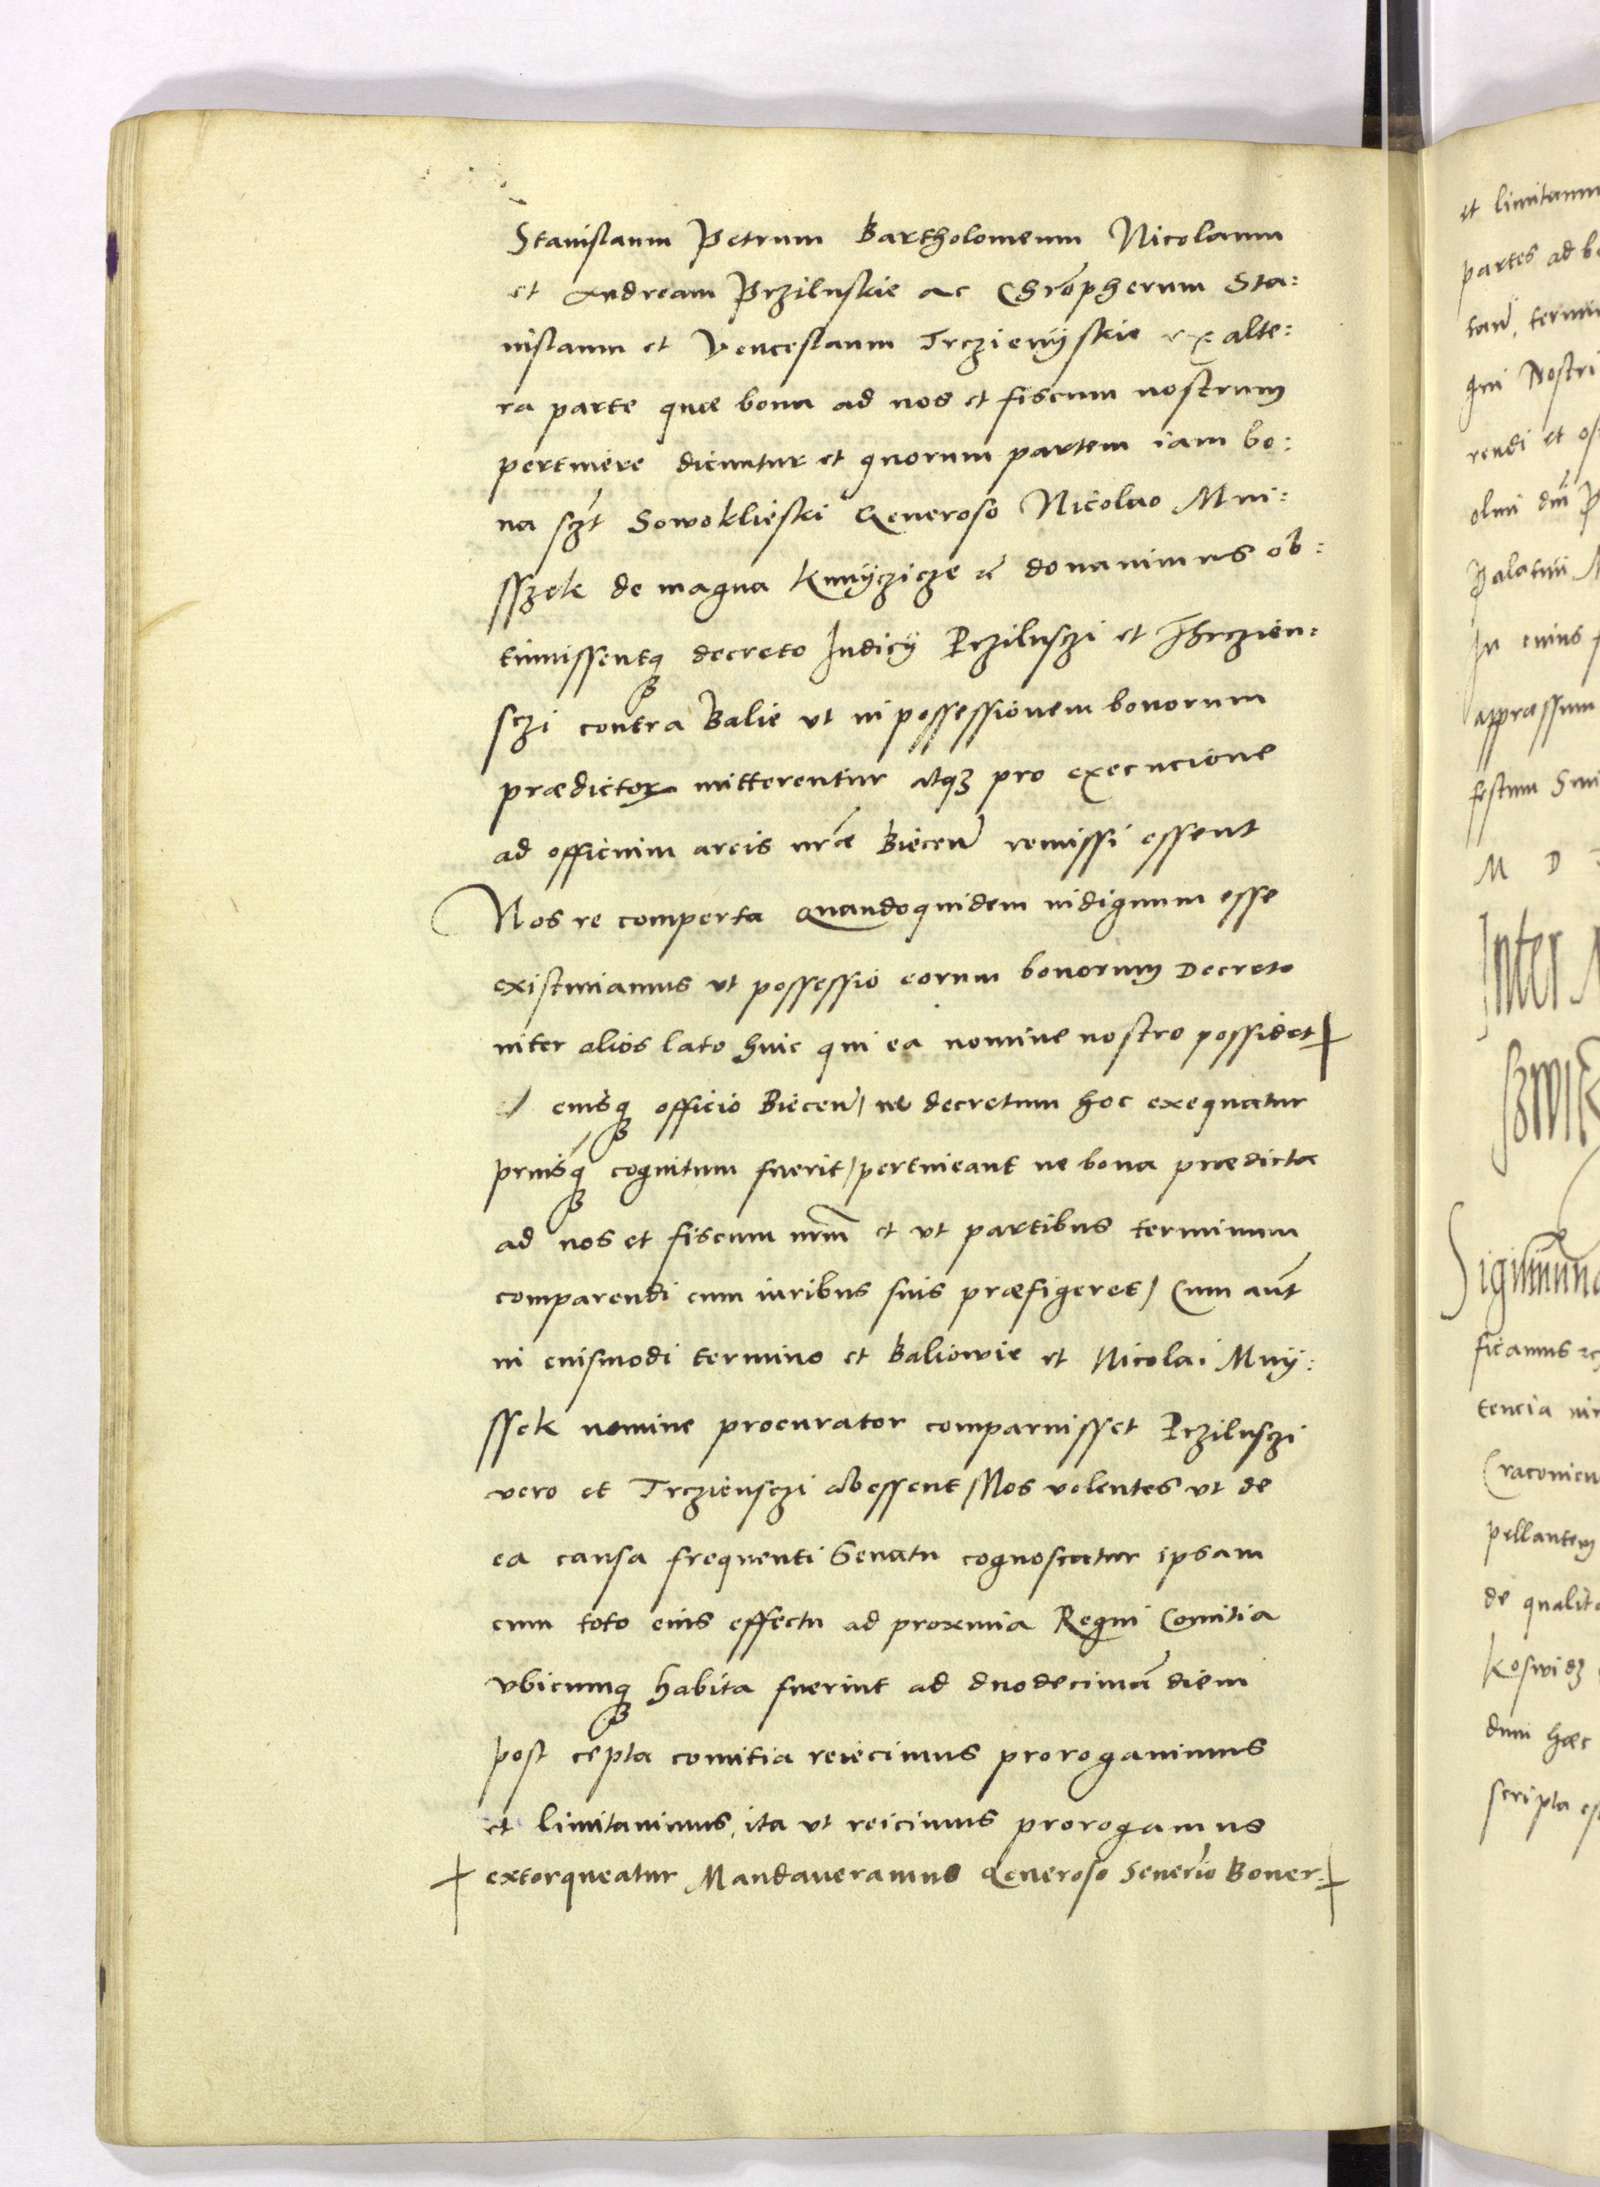 Stanislaum Petrum Bartholomeum Nicolaum
et Andream Prziluskie ac Chrõpherum Sta:
nislaum et Venceslaum Trczienÿskie ex alte:
ra parte quæ bona ad nos et fiscum nostrum
pertinere dicuntur et quorum partem iam bo:
na sczt Sowoklieski Generoso Nicolao Mni:
sszek de magna Knÿczicze etc donavimus ob:
tinuissentq decreto Iudicÿ Przilusczi et Threzien:
sczi contra Balie ut in possessionem bonorum
prædictor mitterentur atqz pro execucione
ad officium arcis nræ Biecen remissi essent
Nos re comperta Quandoquidem indignum esse
existimamus ut possessio eorum bonorum Decreto
inter alios lato huic qui ea nomine nostro possidet
eiusq officio Biecen / ne decretum hoc exequatur
priusq cognitum fuerit / pertineant ne bona prædicta
ad nos et fiscum nrm et ut partibus terminum
comparendi cum iuribus suis præfigeret / Cum aut
in eiusmodi termino et Baliowie et Nicolai Mnÿ:
ssek nomine procurator comparuisset Przilusczi
vero et Trcziensczi abessent / Nos volentes ut de
ea causa frequenti Senatu cognoscatur ipsam
cum toto eius effectu ad proximia Regni Comitia
ubicumq habita fuerint ad duodecimã diem
post cepta comitia reiecimus prorogavimus
et limitavimus, ita ut reicimus prorogamus
extorqueatur Mandaveramus Generoso Severio Boner

et
partes ad
termin
Nostri
rendi et
olim
Palatini
In cuius
appressum
festum
M D
Inter

Sigismund
ficamus
tencia
Cracovien
pellantem
de
Koswidz
dum hæc
scripta